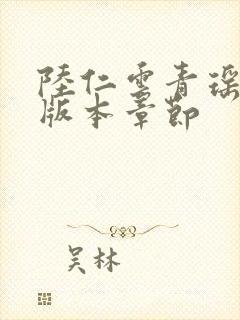 陸仁雲青瑶
版本章節
吴林